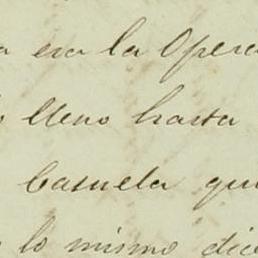 era la Opera
lleno hasta
casuela qu
lo mismo dic